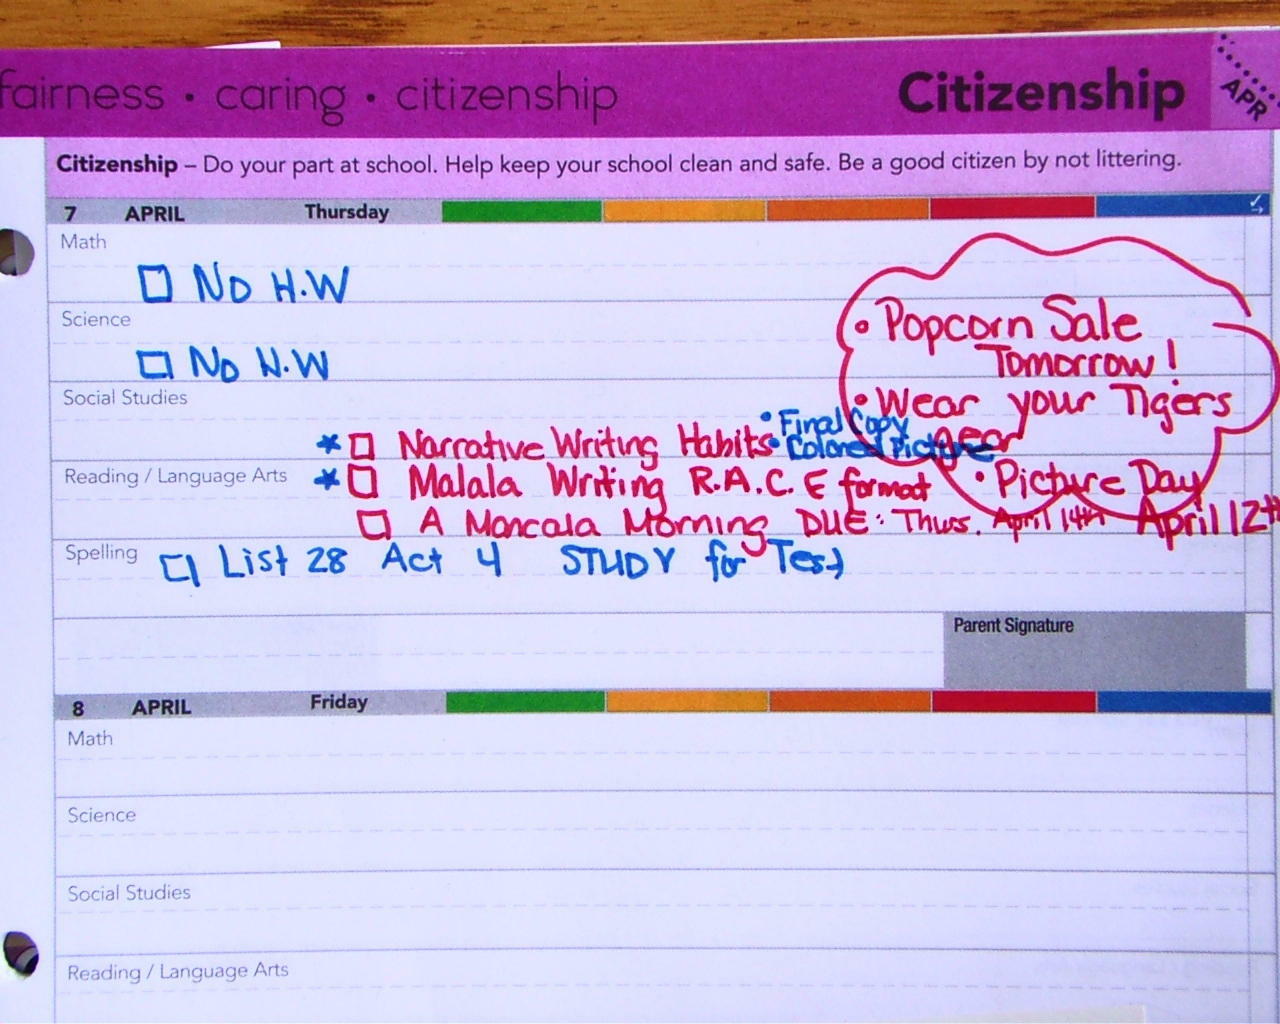 fairness • caring • citizenship Citizenship APR
Citizenship – Do your part at school. Help keep your school clean and safe. Be a good citizen by not littering.
7 APRIL Thursday
Math
No H.W
Science
No H.W
• Popcorn Sale
Tomorrow!
Social Studies
• Wear your Tigers
gear
• Final Copy
* Narrative Writing Habits • Colored Picture
Reading / Language Arts
* Malala Writing R.A.C.E format
• Picture Day
April 12th
A Mancala Morning DUE: Thurs. April 14th
Spelling
List 28 Act 4 STUDY for Test
Parent Signature
8 APRIL Friday
Math
Science
Social Studies
Reading / Language Arts